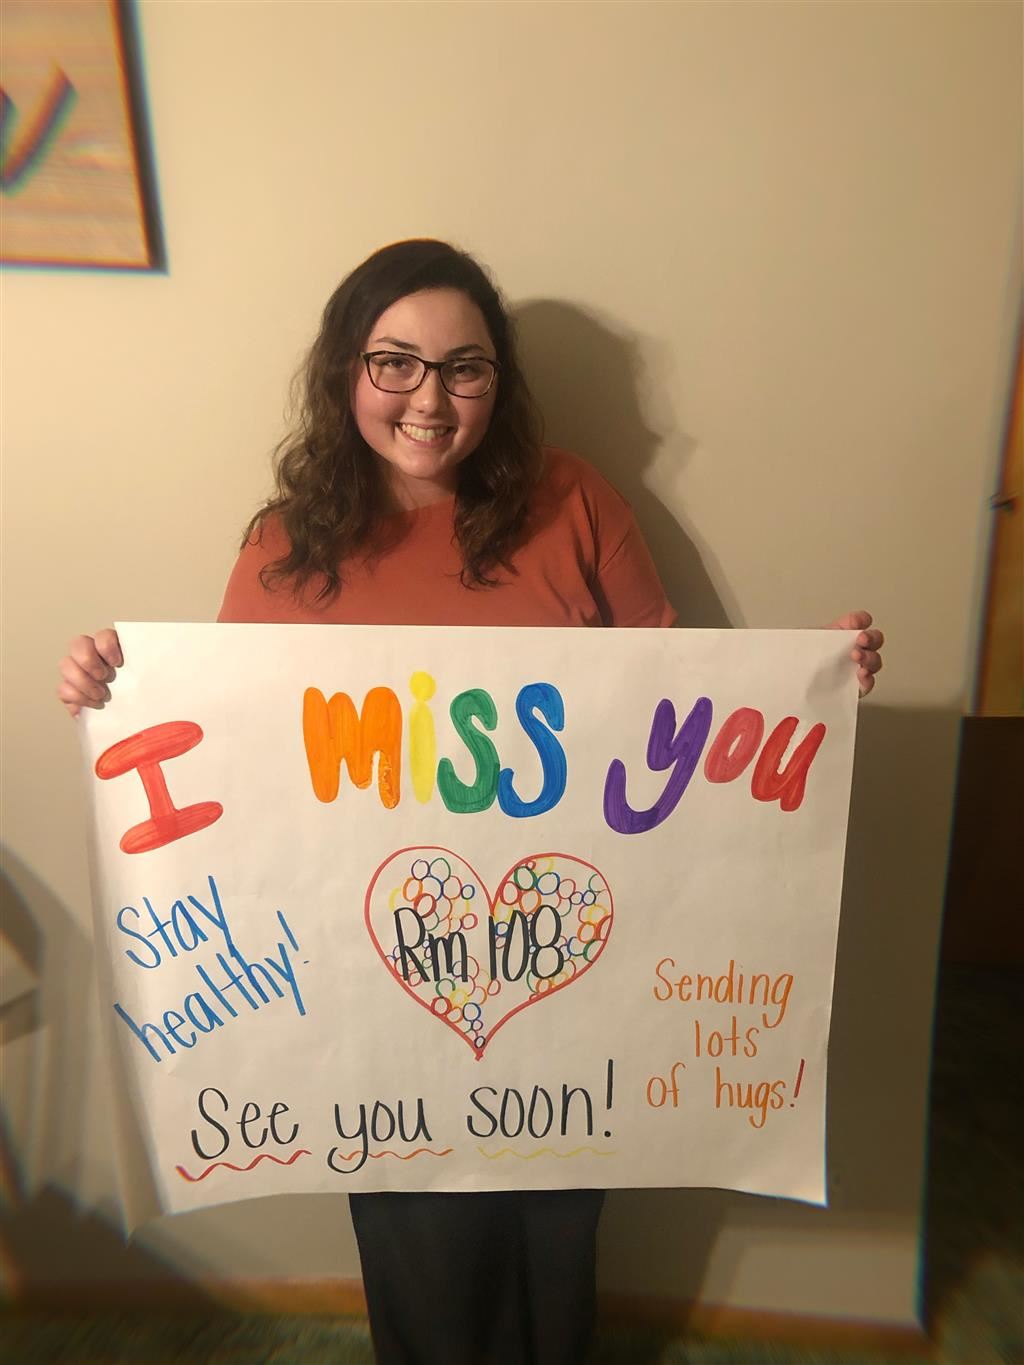 I miss you
Stay
healthy!
Rm 108
Sending
lots
of hugs!
See you soon!